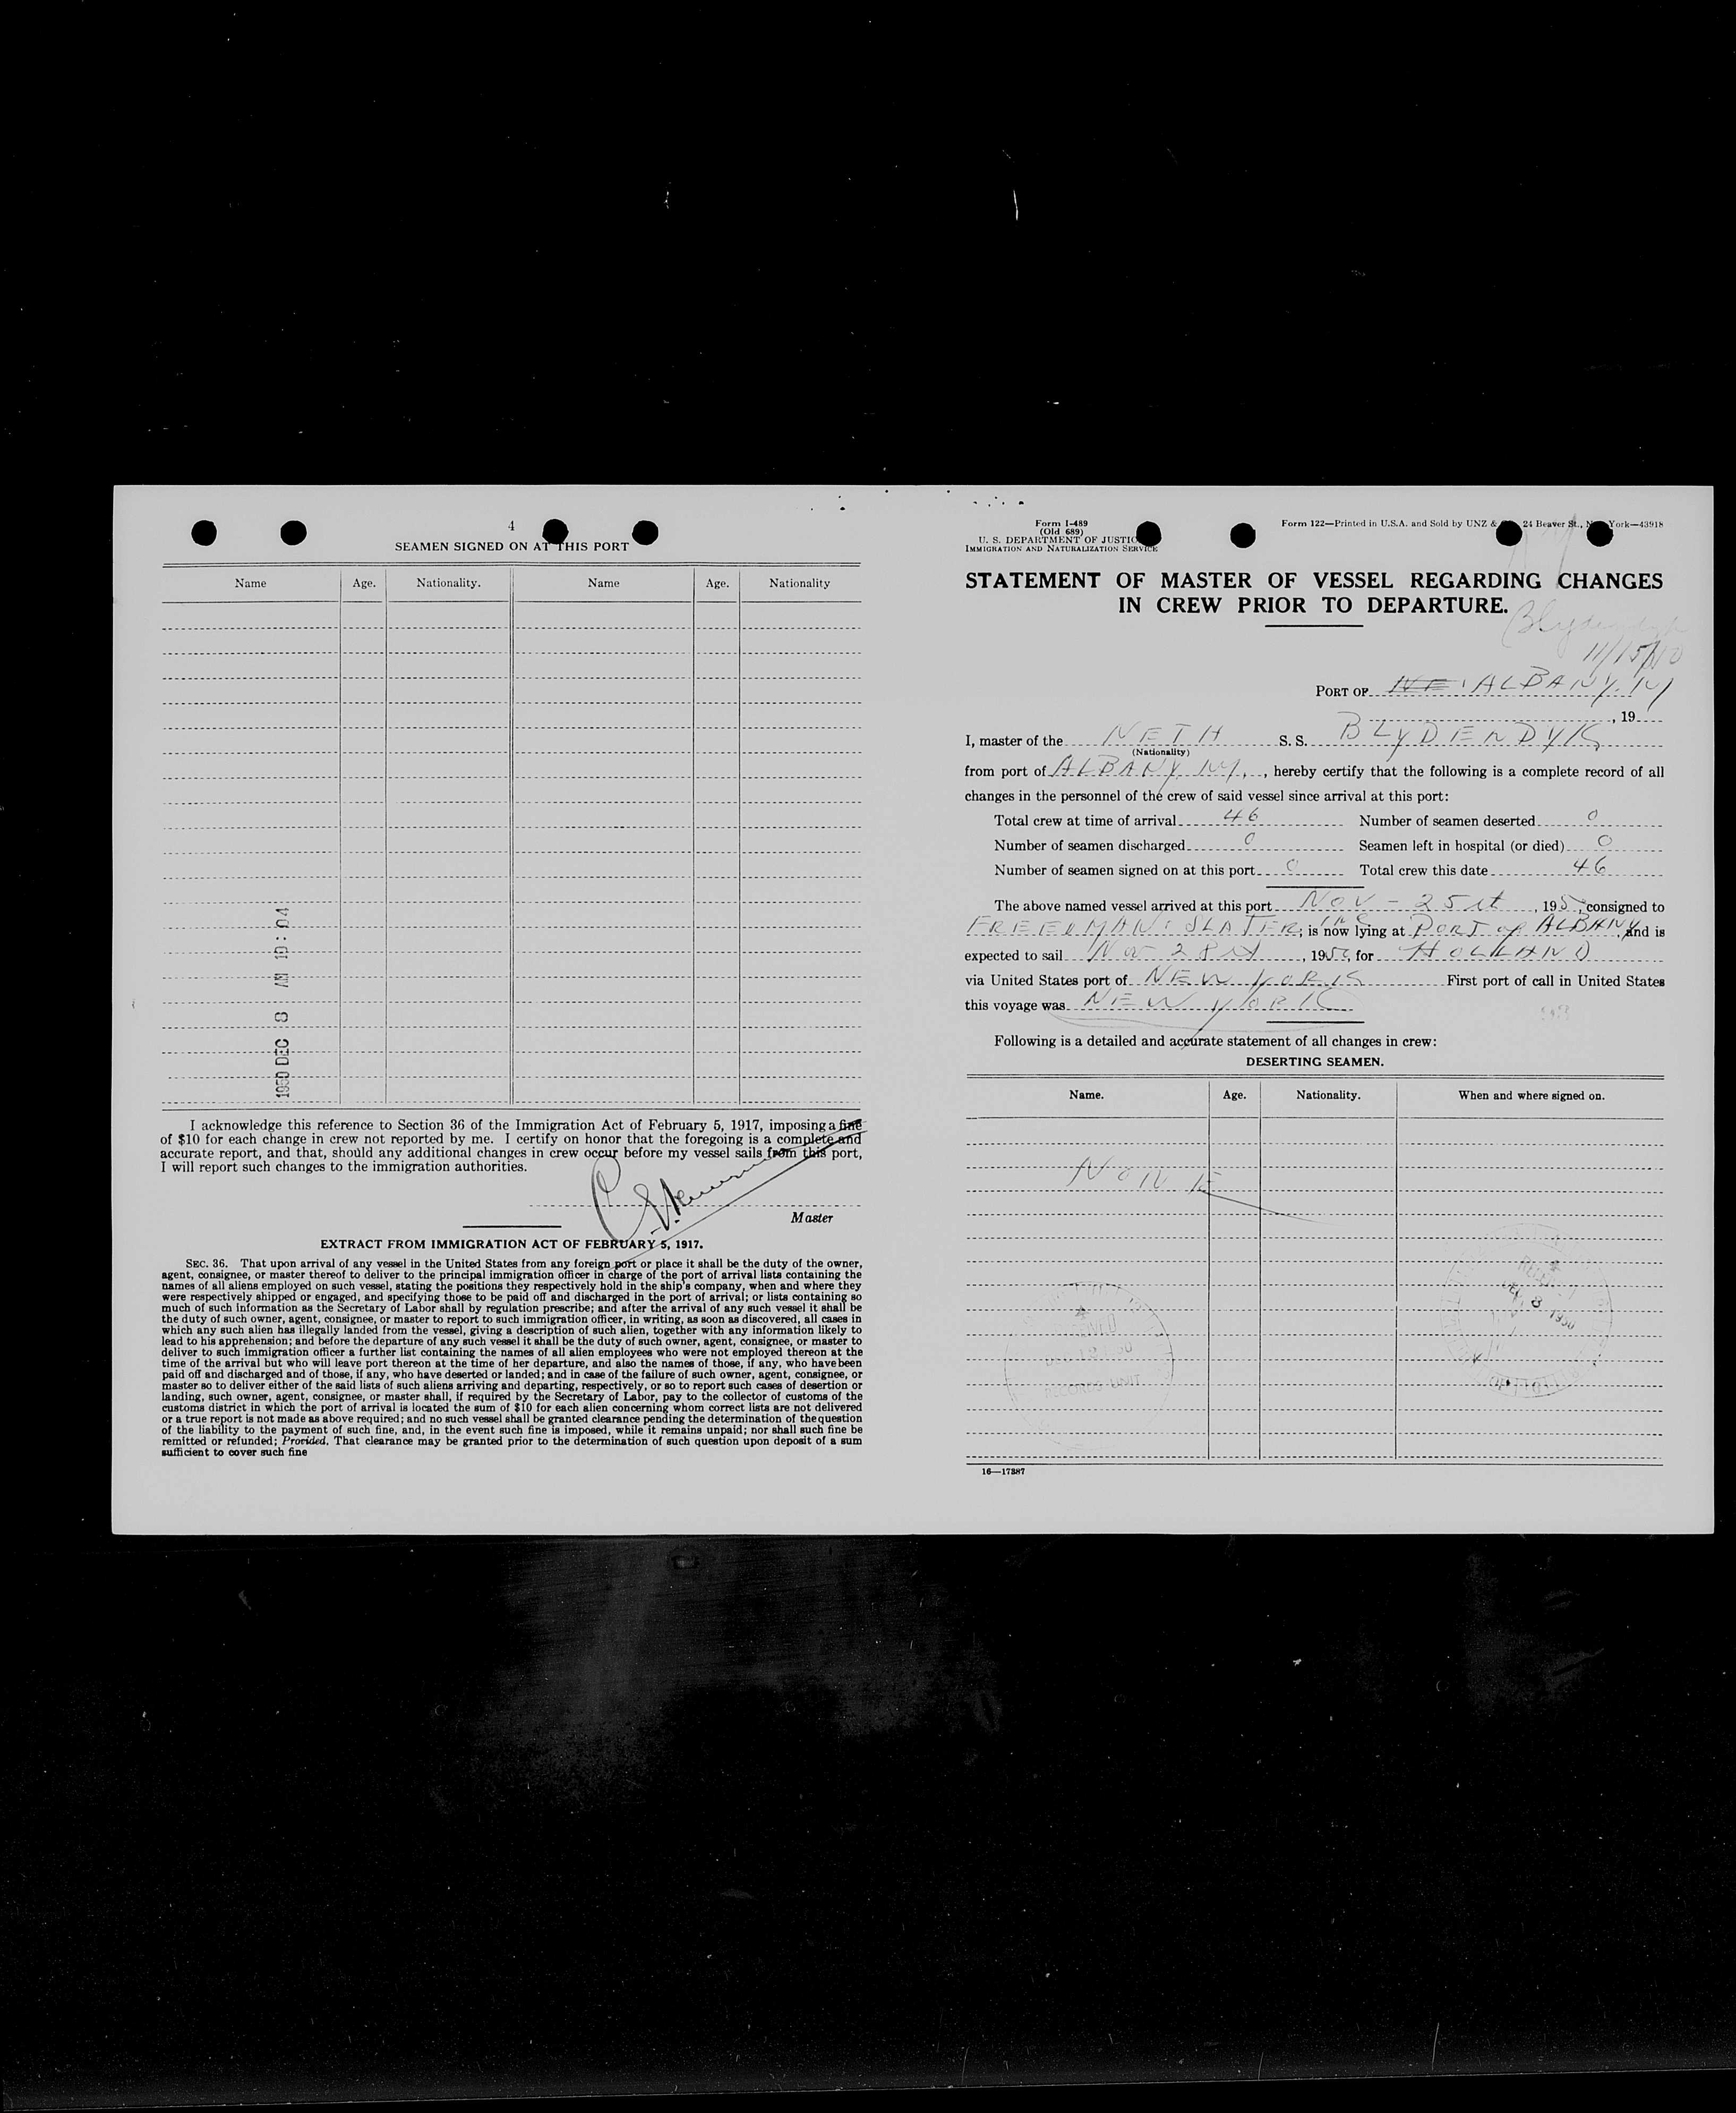 4
SEAMEN SIGNED ON AT THIS PORT
Name Age. Nationality. Name Age. Nationality
1950 DEC 8 AM 10:04
I acknowledge this reference to Section 36 of the Immigration Act of February 5, 1917, imposing a fine
of $10 for each change in crew not reported by me. I certify on honor that the foregoing is a complete and
accurate report, and that, should any additional changes in crew occur before my vessel sails from this port,
I will report such changes to the immigration authorities.
Master
EXTRACT FROM IMMIGRATION ACT OF FEBRUARY 5, 1917.
SEC. 36. That upon arrival of any vessel in the United States from any foreign port or place it shall be the duty of the owner,
agent, consignee, or master thereof to deliver to the principal immigration officer in charge of the port of arrival lists containing the
names of all aliens employed on such vessel, stating the positions they respectively hold in the ship's company, when and where they
were respectively shipped or engaged, and specifying those to be paid off and discharged in the port of arrival; or lists containing so
much of such information as the Secretary of Labor shall by regulation prescribe; and after the arrival of any such vessel it shall be
the duty of such owner, agent, consignee, or master to report to such immigration officer, in writing, as soon as discovered, all cases in
which any such alien has illegally landed from the vessel, giving a description of such alien, together with any information likely to
lead to his apprehension; and before the departure of any such vessel it shall be the duty of such owner, agent, consignee, or master to
deliver to such immigration officer a further list containing the names of all alien employees who were not employed thereon at the
time of the arrival but who will leave port thereon at the time of her departure, and also the names of those, if any, who have been
paid off and discharged and of those, if any, who have deserted or landed; and in case of the failure of such owner, agent, consignee, or
master so to deliver either of the said lists of such aliens arriving and departing, respectively, or so to report such cases of desertion or
landing, such owner, agent, consignee, or master shall, if required by the Secretary of Labor, pay to the collector of customs of the
customs district in which the port of arrival is located the sum of $10 for each alien concerning whom correct lists are not delivered
or a true report is not made as above required; and no such vessel shall be granted clearance pending the determination of the question
of the liability to the payment of such fine, and, in the event such fine is imposed, while it remains unpaid; nor shall such fine be
remitted or refunded; Provided, That clearance may be granted prior to the determination of such question upon deposit of a sum
sufficient to cover such fine
Form I-489
(Old 689)
U. S. DEPARTMENT OF JUSTICE
IMMIGRATION AND NATURALIZATION SERVICE
Form 122—Printed in U.S.A. and Sold by UNZ & 24 Beaver St., New York—43918
STATEMENT OF MASTER OF VESSEL REGARDING CHANGES
IN CREW PRIOR TO DEPARTURE.
Blydendyk
11/15/
PORT OF ALBANY. NY
, 19
I, master of the NETH S. S. BLYDENDYK
(Nationality)
from port of ALBANY NY, hereby certify that the following is a complete record of all
changes in the personnel of the crew of said vessel since arrival at this port:
Total crew at time of arrival 46 Number of seamen deserted 0
Number of seamen discharged 0 Seamen left in hospital (or died) 0
Number of seamen signed on at this port 0 Total crew this date 46
The above named vessel arrived at this port NOV - 25 , 195 , consigned to
FREEDMAN & SLATER, INC; is now lying at PORT of ALBANY, and is
expected to sail Nov 28 , 1950, for HOLLAND
via United States port of NEW YORK First port of call in United States
this voyage was NEW YORK
Following is a detailed and accurate statement of all changes in crew:
DESERTING SEAMEN.
Name. Age. Nationality. When and where signed on.
NONE
DEC 8 1950
RECORDS UNIT
16—17387